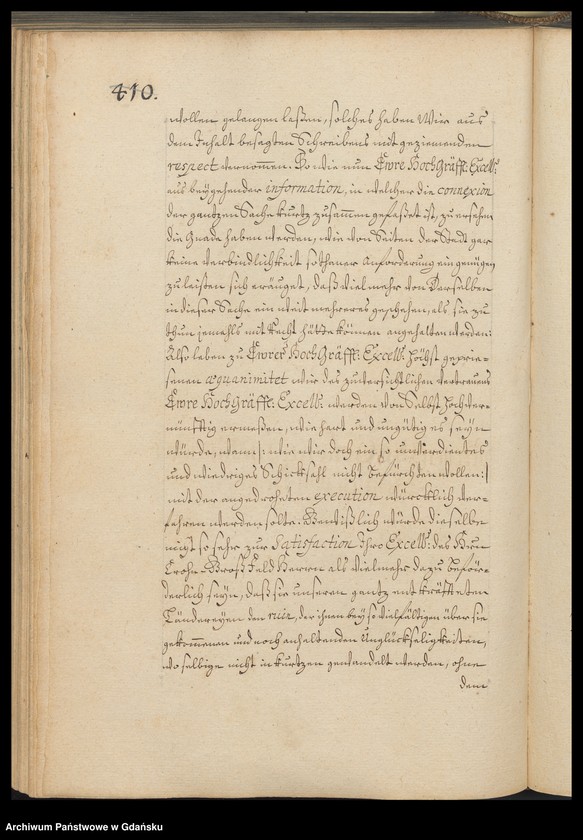 410.
wollen gelangen laßen, solches haben Wir aus
dem Inhalt besagten Schreibens mit geziemenden
respect vernommen. So wie nun Ewre HochGräffl: Excell:
aus beygehender information, in welcher die connexion
der gantzen Sache kurtz zusammen gefaßet ist, zu ersehen
die Gnade haben werden, wie von Seiten der Stadt gar
keine Verbindlichkeit sothaner Anforderung ein genügen
zu leisten sich eräuget, daß vielmehr von Derselben
in dieser Sache ein weit mehreres geschehen, als sie zu
thun jemahls mit Recht hätte können angehalten werden:
Also leben zu Ewrer HochGräffl: Excell: höchst geprie-
senen æquanimitet wir des zuversichtlichen Vertrauens
Ewre HochGräffl: Excell: werden von Selbst hochver-
nünfftig ermeßen, wie hart und ungütig es seyn
würde, wann |: wie wir doch ein so unverdientes
und wiedriges Schicksahl nicht befürchten wollen :|
mit der angedroheten execution würcklich ver-
fahren werden solte. Gewißlich würde dieselbe
nicht so sehr zur Satisfaction Ihro Excell: des Hrn
Crohn-Groß-Feld Herren als vielmehr dazu beför-
derlich seyn, daß sie unseren gantz entkräffteten
Ländereyen den ruin, der ihnen bey so vielfältigen über sie
gekommenen und noch anhaltenden Unglückseligkeiten,
wo selbige nicht in kurtzen gewandelt werden, ohne
dem
Archiwum Państwowe w Gdańsku